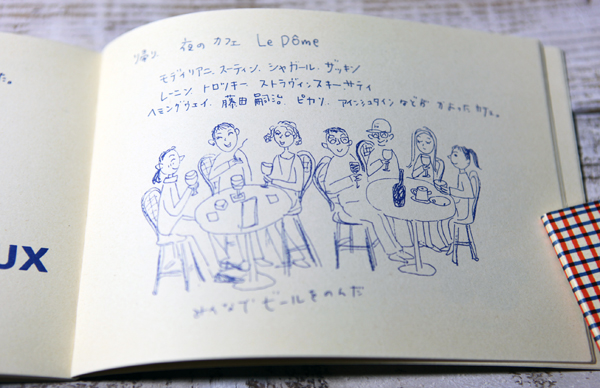 た。
UX
帰り、夜のカフェ Le Dôme
モディリアニ、スーティン、シャガール、ザッキン
レーニン、トロツキー、ストラヴィンスキー、サティ
ヘミングウェイ、藤田嗣治、ピカソ、アインシュタインなどが かよったカフェ。
みんなで ビールをのんだ